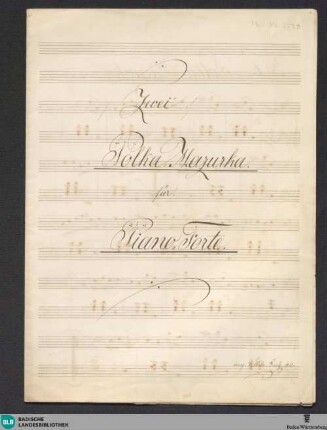 Zwei
Polka Mazurka.
für
Piano-Forte.
BLB
BADISCHE
LANDESBIBLIOTHEK
Baden-Württemberg